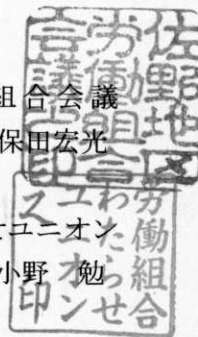 組合会議
保田宏光
せユニオン
小野 勉
佐野地区
労働組合
会議之印
労働組合
わたらせ
ユニオン
之印